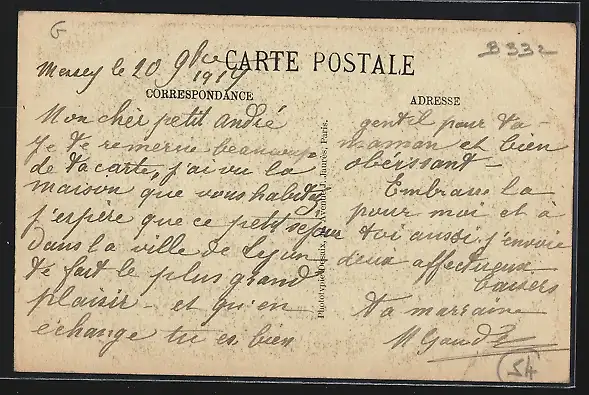 G
B 332
CARTE POSTALE
le 20 9bre
1919
CORRESPONDANCE
ADRESSE
Mon cher petit andré
Je te remercie beaucoup
de ta carte, j'ai vu la
maison que vous habitez
j'espère que ce petit séjour
Dans la ville de
te fait le plus grand
plaisir - et qu'en
échange tu es bien
gentil pour ta
maman et bien
obéissant -
Embrasse la
pour moi et à
toi aussi j'envoie
deux affectueux
baisers
ta marraine
M
Phototypie Avenue J. Jaurès, Paris.
5A